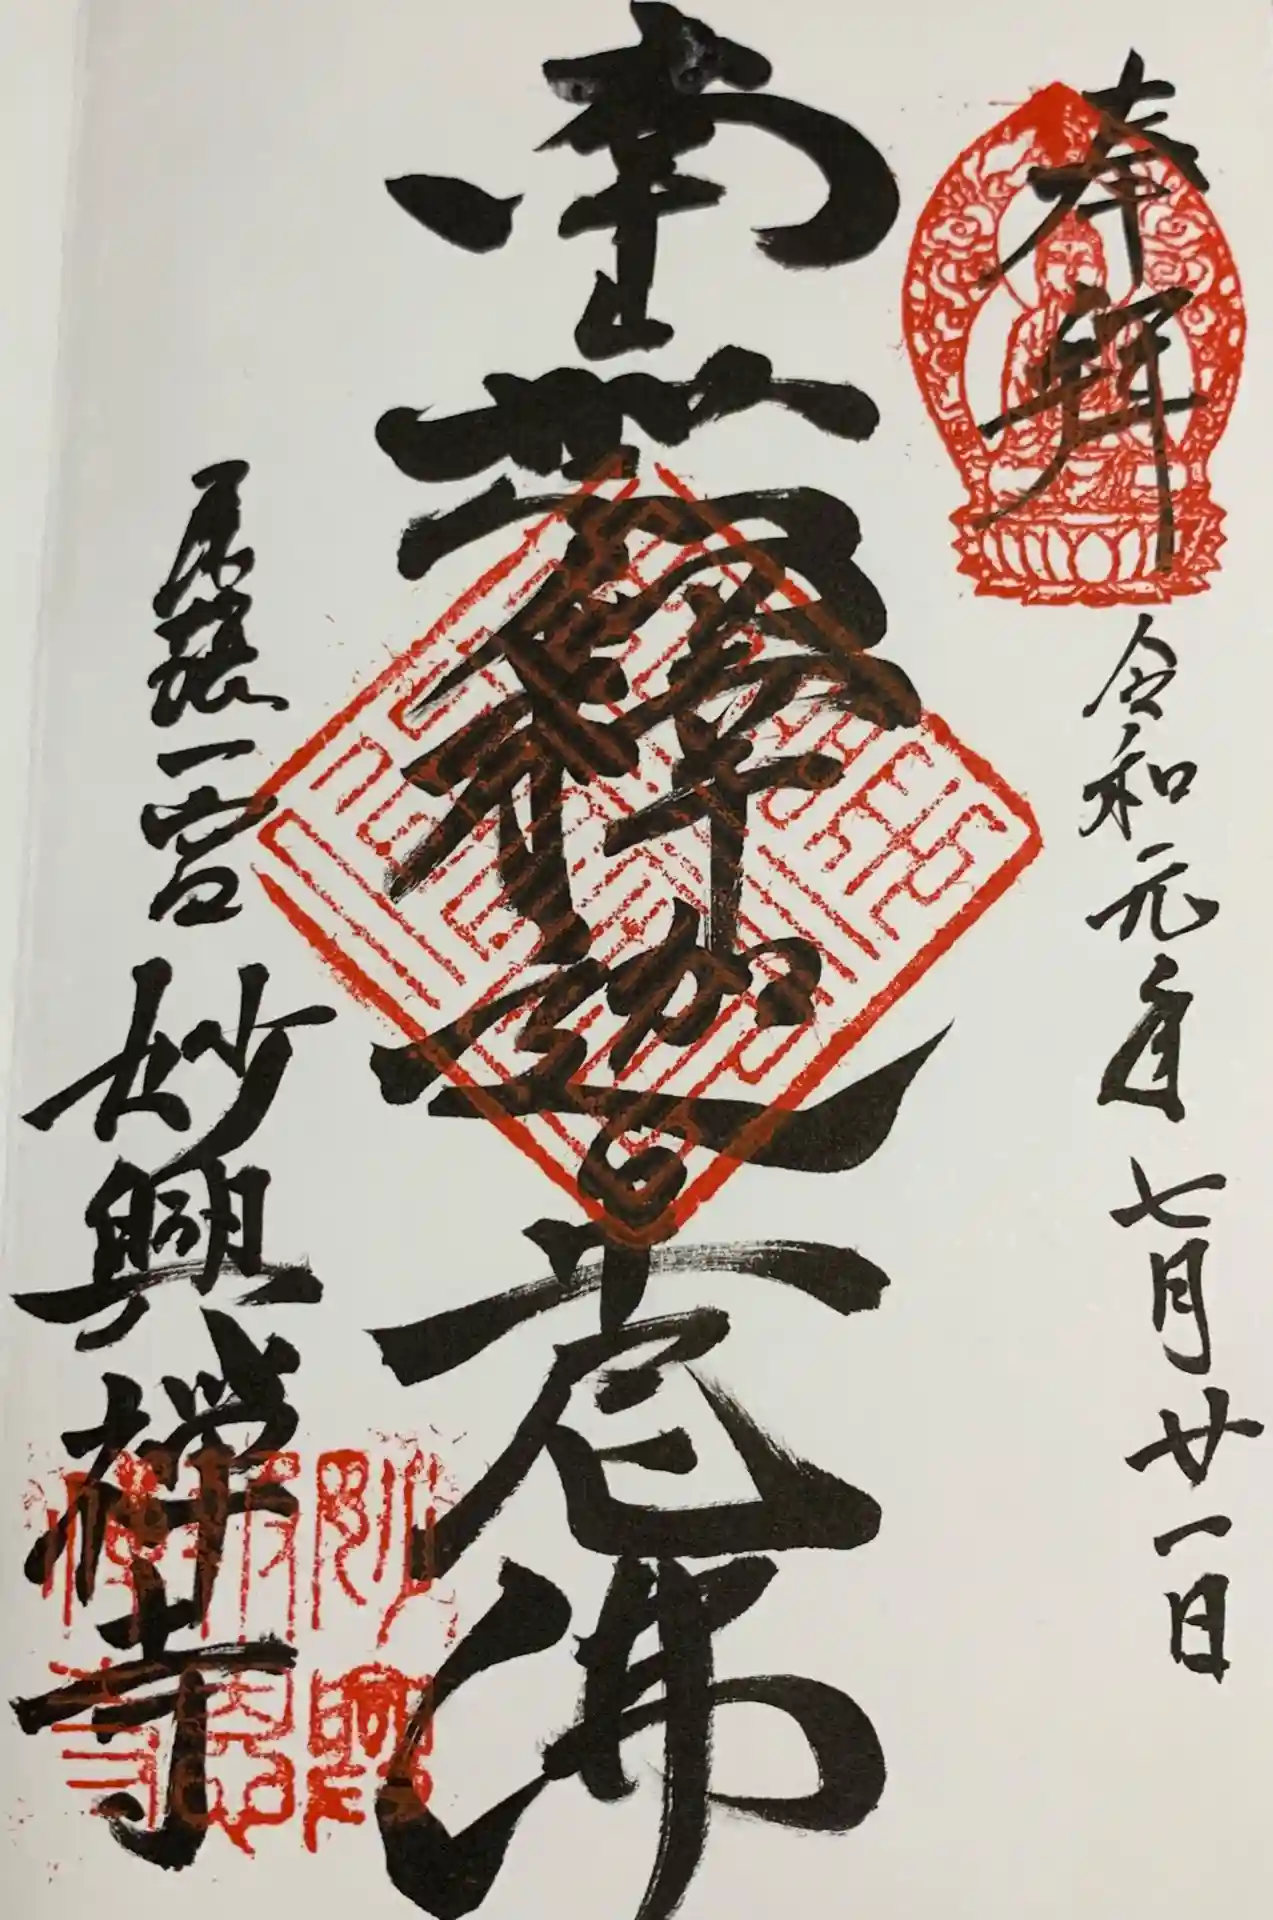 奉拝
令和元年七月廿一日
南無釋迦牟尼佛
尾張一宮 妙興禅寺